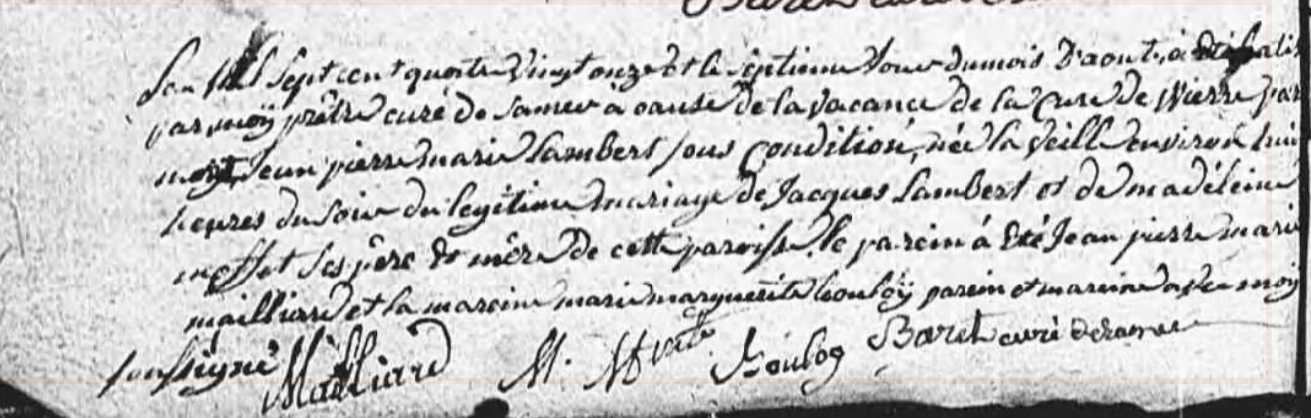 L'an mil Sept cent quatre Vingt onze et le Septieme Jour du mois D'aout, à été
par moÿ prêtre curé de Samer à cause De la Vacance De la Cure De Wierre par
Jean pierre marie Lambert sous Condition, née la Veille environ huit
heures du Soir du legitime mariage De Jacques Lambert et de madéleine
Ses père Et mère De cette paroisse, le parein à Eté Jean pierre marie
mailliard et la mareine marie marguerite Bouloÿ parein et mareine moÿ
soussigné Mailliard M. Mrite Bouloy Baret curé de samer